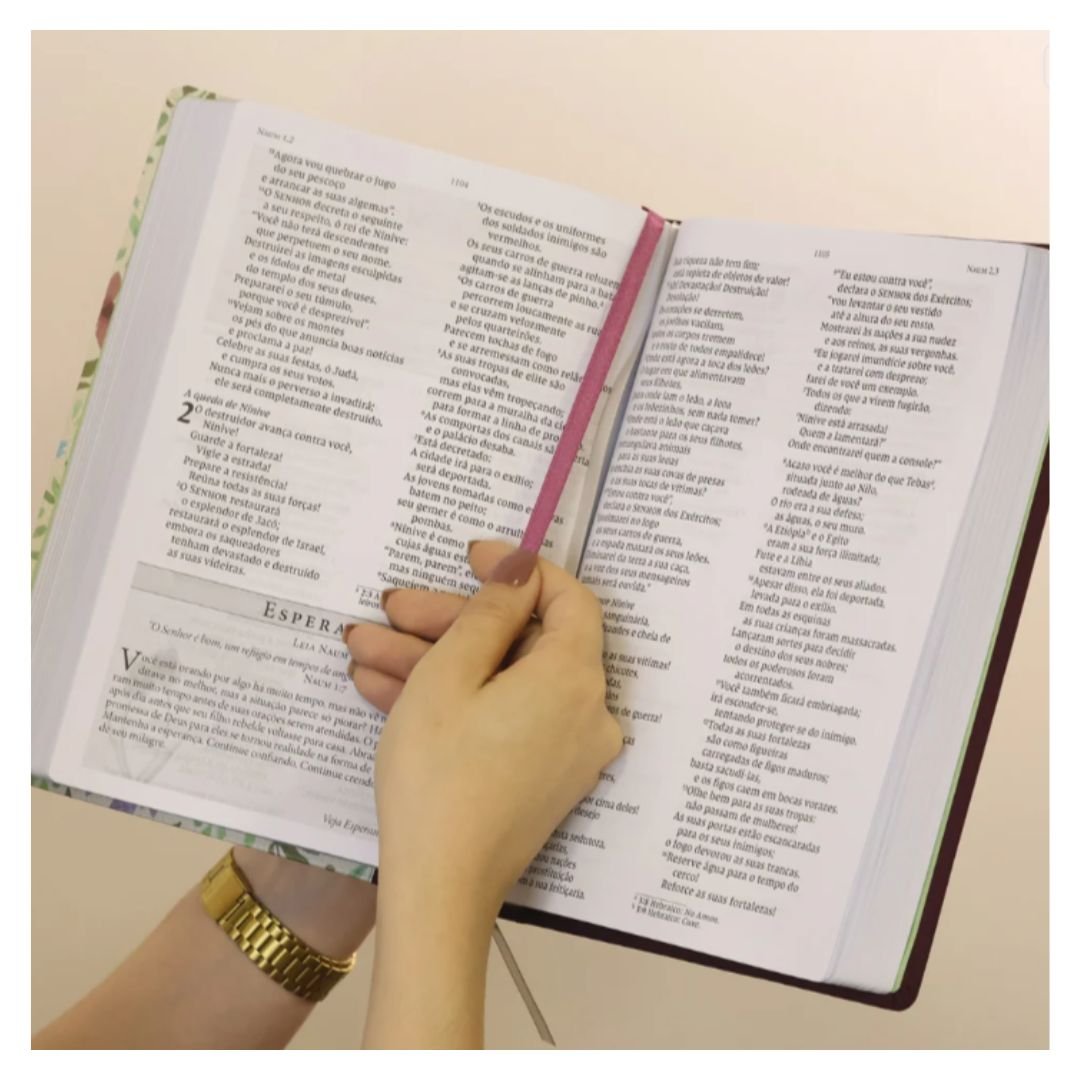 Naum 1,2
1104
¹³Agora vou quebrar o jugo
do seu pescoço
e arrancar as suas algemas".
¹⁴O SENHOR decreta o seguinte
a seu respeito, ó rei de Nínive:
"Você não terá descendentes
que perpetuem o seu nome.
Destruirei as imagens esculpidas
e os ídolos de metal
do templo dos seus deuses.
Prepararei o seu túmulo,
porque você é desprezível".
¹⁵Vejam sobre os montes
os pés do que anuncia boas notícias
e proclama a paz!
Celebre as suas festas, ó Judá,
e cumpra os seus votos.
Nunca mais o perverso a invadirá;
ele será completamente destruído.
A queda de Nínive
2 O destruidor avança contra você,
Nínive!
Guarde a fortaleza!
Vigie a estrada!
Prepare a resistência!
Reúna todas as suas forças!
²O SENHOR restaurará
o esplendor de Jacó;
restaurará o esplendor de Israel,
embora os saqueadores
tenham devastado e destruído
as suas videiras.
³Os escudos e os uniformes
dos soldados inimigos são
vermelhos.
Os seus carros de guerra reluzem
quando se alinham para a bata
agitam-se as lanças de pinho.
⁴Os carros de guerra
percorrem loucamente as rua
e se cruzam velozmente
pelos quarteirões.
Parecem tochas de fogo
e se arremessam como relâ os
⁵As suas tropas de elite são
convocadas,
mas elas vêm tropeçando;
correm para a muralha da ci
para formar a linha de pro
⁶As comportas dos canais sã
e o palácio desaba.
⁷Está decretado:
A cidade irá para o exílio;
será deportada.
As jovens tomadas como e vas
batem no peito;
seu gemer é como o arrul as
pombas.
⁸Nínive é como
cujas águas est
"Parem, parem",
mas ninguém seq
⁹Saqueiem
ESPERA
LEIA NAUM
"O Senhor é bom, um refúgio em tempos de ang
NAUM 1:7
Você está orando por algo há muito tempo, mas não vê
ditava no melhor, mas a situação parece só piorar?
ram muito tempo antes de suas orações serem atendidas. O p
após dia antes que seu filho rebelde voltasse para casa. Abra
promessa de Deus para eles se tornou realidade na forma de
Mantenha a esperança. Continue confiando. Continue crend
de seu milagre.
Veja Esperan
1105
Naum 2,3
Sua riqueza não tem fim;
está repleta de objetos de valor!
¹⁰Ah! Devastação! Destruição!
Desolação!
Os corações se derretem,
os joelhos vacilam,
todos os corpos tremem
e o rosto de todos empalidece!
¹¹Onde está agora a toca dos leões?
O lugar em que alimentavam
seus filhotes,
para onde iam o leão, a leoa
e os leõezinhos, sem nada temer?
¹²Onde está o leão que caçava
o bastante para os seus filhotes,
estrangulava animais
para as suas leoas
e enchia as suas covas de presas
e as suas tocas de vítimas?
¹³"Estou contra você",
declara o SENHOR dos Exércitos;
"queimarei no fogo
os seus carros de guerra,
e a espada matará os seus leões.
Eliminarei da terra a sua caça,
e a voz dos seus mensageiros
jamais será ouvida."
sobre Nínive
sanguinária,
fraudes e cheia de
as suas vítimas!
chicotes,
os de guerra!
por cima deles!
desejo
sedutora,
nações
prostituição
a sua feitiçaria.
⁵"Eu estou contra você",
declara o SENHOR dos Exércitos;
"vou levantar o seu vestido
até a altura do seu rosto.
Mostrarei às nações a sua nudez
e aos reinos, as suas vergonhas.
⁶Eu jogarei imundície sobre você,
e a tratarei com desprezo;
farei de você um exemplo.
⁷Todos os que a virem fugirão,
dizendo:
'Nínive está arrasada!
Quem a lamentará?'
Onde encontrarei quem a console?"
⁸Acaso você é melhor do que Tebas,
situada junto ao Nilo,
rodeada de águas?
O rio era a sua defesa;
as águas, o seu muro.
⁹A Etiópia e o Egito
eram a sua força ilimitada;
Fute e a Líbia
estavam entre os seus aliados.
¹⁰Apesar disso, ela foi deportada,
levada para o exílio.
Em todas as esquinas
as suas crianças foram massacradas.
Lançaram sortes para decidir
o destino dos seus nobres;
todos os poderosos foram
acorrentados.
¹¹Você também ficará embriagada;
irá esconder-se,
tentando proteger-se do inimigo.
¹²Todas as suas fortalezas
são como figueiras
carregadas de figos maduros;
basta sacudi-las,
e os figos caem em bocas vorazes.
¹³Olhe bem para as suas tropas:
não passam de mulheres!
As suas portas estão escancaradas
para os seus inimigos;
o fogo devorou as suas trancas.
¹⁴Reserve água para o tempo do
cerco!
Reforce as suas fortalezas!
3:8 Hebraico: No Amom.
3:9 Hebraico: Cuxe.